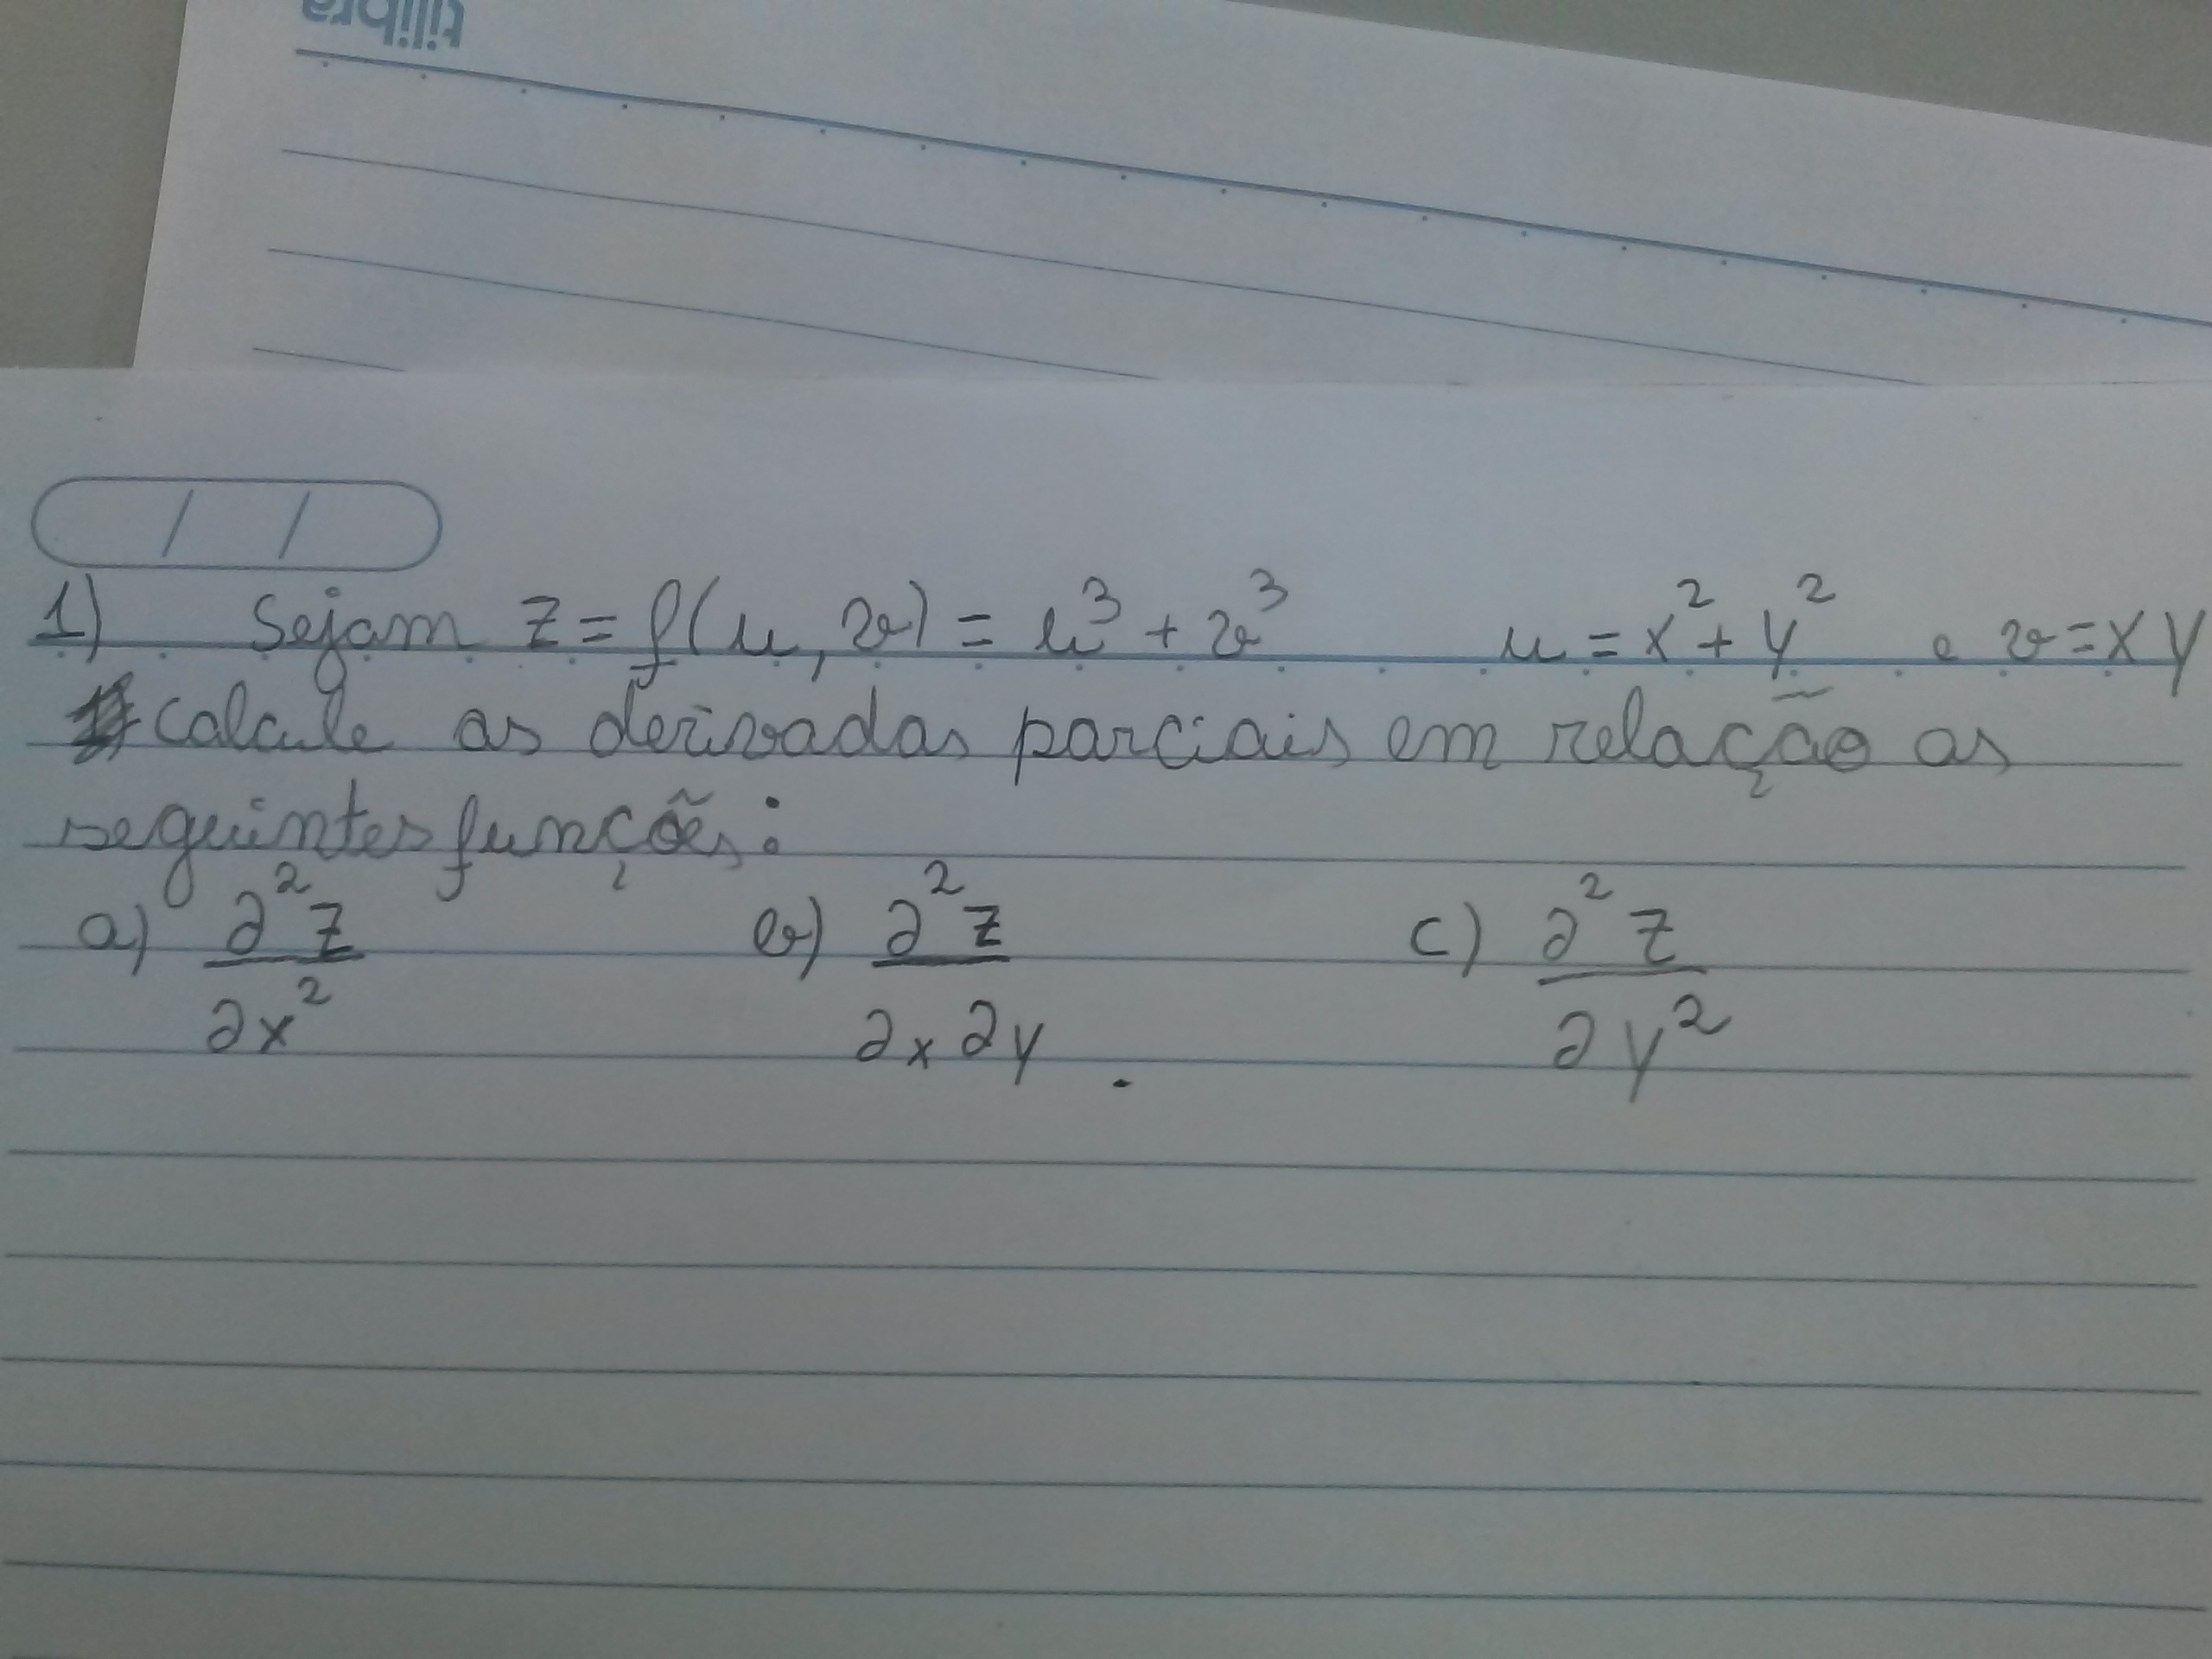 tilibra
1) Sejam z = f(u, v) = u³ + v³ u = x² + y² e v = xy
calcule as derivadas parciais em relação as
seguintes funções:
a) ∂²z/∂x² b) ∂²z/∂x∂y. c) ∂²z/∂y²